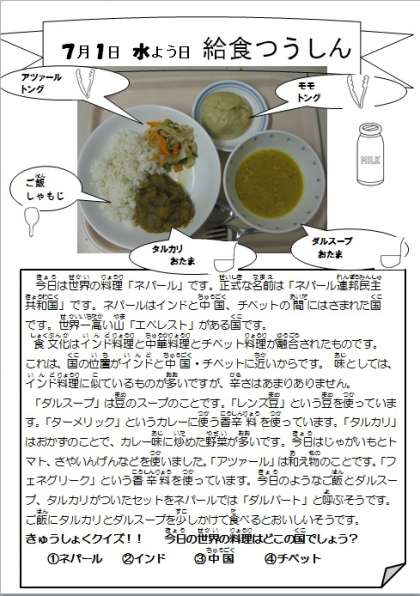 7月1日 水よう日 給食つうしん
アツァール
トング
モモ
トング
MILK
ご飯
しゃもじ
タルカリ
おたま
ダルスープ
おたま
今日は世界の料理「ネパール」です。正式な名前は「ネパール連邦民主
共和国」です。ネパールはインドと中国、チベットの間にはさまれた国
です。世界一高い山「エベレスト」がある国です。
食文化はインド料理と中華料理とチベット料理が融合されたものです。
これは、国の位置がインドと中国・チベットに近いからです。味としては、
インド料理に似ているものが多いですが、辛さはあまりありません。
「ダルスープ」は豆のスープのことです。「レンズ豆」という豆を使っていま
す。「ターメリック」というカレーに使う香辛料を使っています。「タルカリ」
はおかずのことで、カレー味に炒めた野菜が多いです。今日はじゃがいもとト
マト、さやいんげんなどを使いました。「アツァール」は和え物のことです。「フ
ェネグリーク」という香辛料を使っています。今日のようなご飯とダルスー
プ、タルカリがついたセットをネパールでは「ダルバート」と呼ぶそうです。
ご飯にタルカリとダルスープを少しかけて食べるとおいしいそうです。
きゅうしょくクイズ！！ 今日の世界の料理はどこの国でしょう？
①ネパール ②インド ③中国 ④チベット